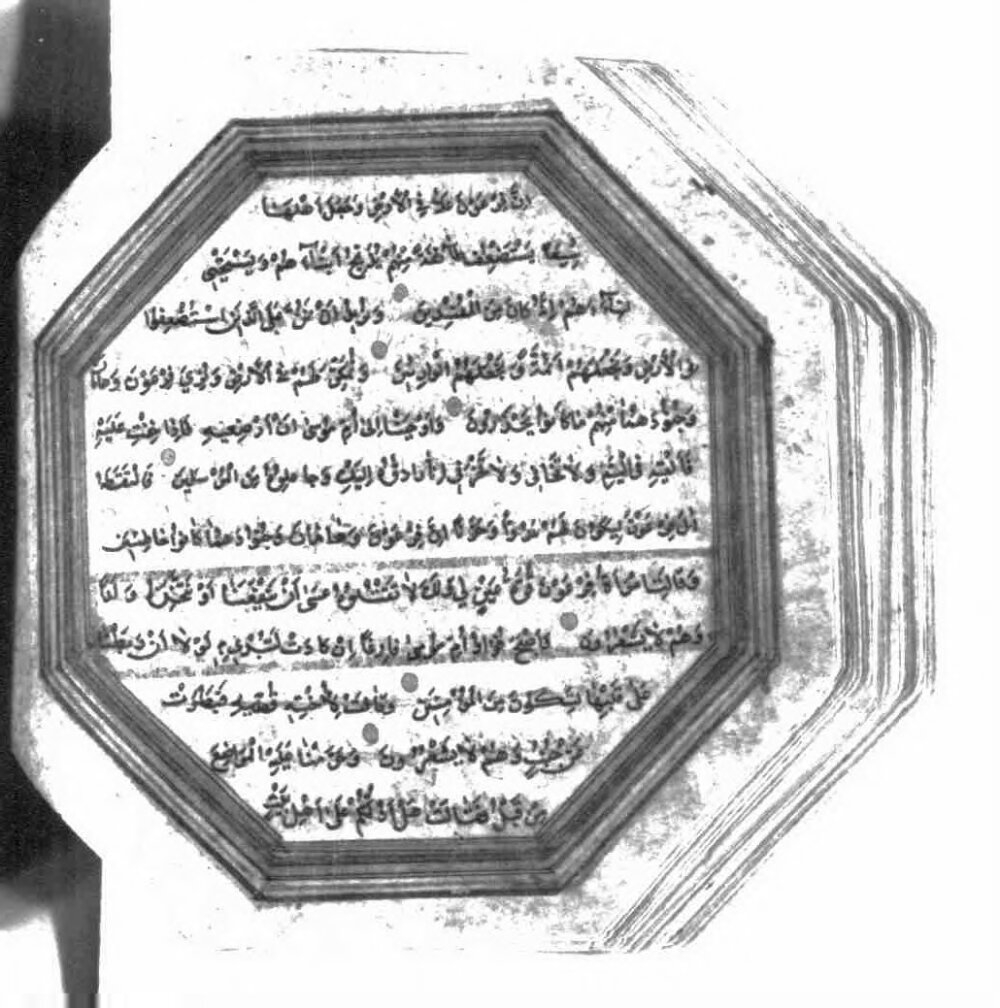 انَّ فِرْعَوْنَ عَلَا فِي الْاَرْضِ وَجَعَلَ اَهْلَهَا
شِيَعًا يَسْتَضْعِفُ طَآئِفَةً مِنْهُمْ يُذَبِّحُ اَبْنَآءَ هُمْ وَيَسْتَحْيِي
نِسَآءَ هُمْ اِنَّهُ كَانَ مِنَ الْمُفْسِدِينَ وَنُرِيدُ اَنْ نَمُنَّ عَلَى الَّذِينَ اسْتُضْعِفُوا
فِي الْاَرْضِ وَنَجْعَلَهُمْ اَئِمَّةً وَنَجْعَلَهُمُ الْوَارِثِينَ وَنُمَكِّنَ لَهُمْ فِي الْاَرْضِ وَنُرِيَ فِرْعَوْنَ وَهَامَانَ
وَجُنُودَهُمَا مِنْهُمْ مَا كَانُوا يَحْذَرُونَ وَاَوْحَيْنَا اِلَى اُمِّ مُوسَى اَنْ اَرْضِعِيهِ فَاِذَا خِفْتِ عَلَيْهِ
فَاَلْقِيهِ فِي الْيَمِّ وَلَا تَخَافِي وَلَا تَحْزَنِي اِنَّا رَادُّوهُ اِلَيْكِ وَجَاعِلُوهُ مِنَ الْمُرْسَلِينَ فَالْتَقَطَهُ
اٰلُ فِرْعَوْنَ لِيَكُونَ لَهُمْ عَدُوًّا وَحَزَنًا اِنَّ فِرْعَوْنَ وَهَامَانَ وَجُنُودَهُمَا كَانُوا خَاطِئِينَ
وَقَالَتِ امْرَاَةُ فِرْعَوْنَ قُرَّةُ عَيْنٍ لِي وَلَكَ لَا تَقْتُلُوهُ عَسَى اَنْ يَنْفَعَنَا اَوْ نَتَّخِذَهُ وَلَدًا
وَهُمْ لَا يَشْعُرُونَ وَاَصْبَحَ فُؤَادُ اُمِّ مُوسَى فَارِغًا اِنْ كَادَتْ لَتُبْدِي بِهِ لَوْلَا اَنْ رَبَطْنَا
عَلَى قَلْبِهَا لِتَكُونَ مِنَ الْمُؤْمِنِينَ وَقَالَتْ لِاُخْتِهِ قُصِّيهِ فَبَصُرَتْ
عَنْ جُنُبٍ وَهُمْ لَا يَشْعُرُونَ وَحَرَّمْنَا عَلَيْهِ الْمَرَاضِعَ
مِنْ قَبْلُ فَقَالَتْ هَلْ اَدُلُّكُمْ عَلَى اَهْلِ بَيْتٍ